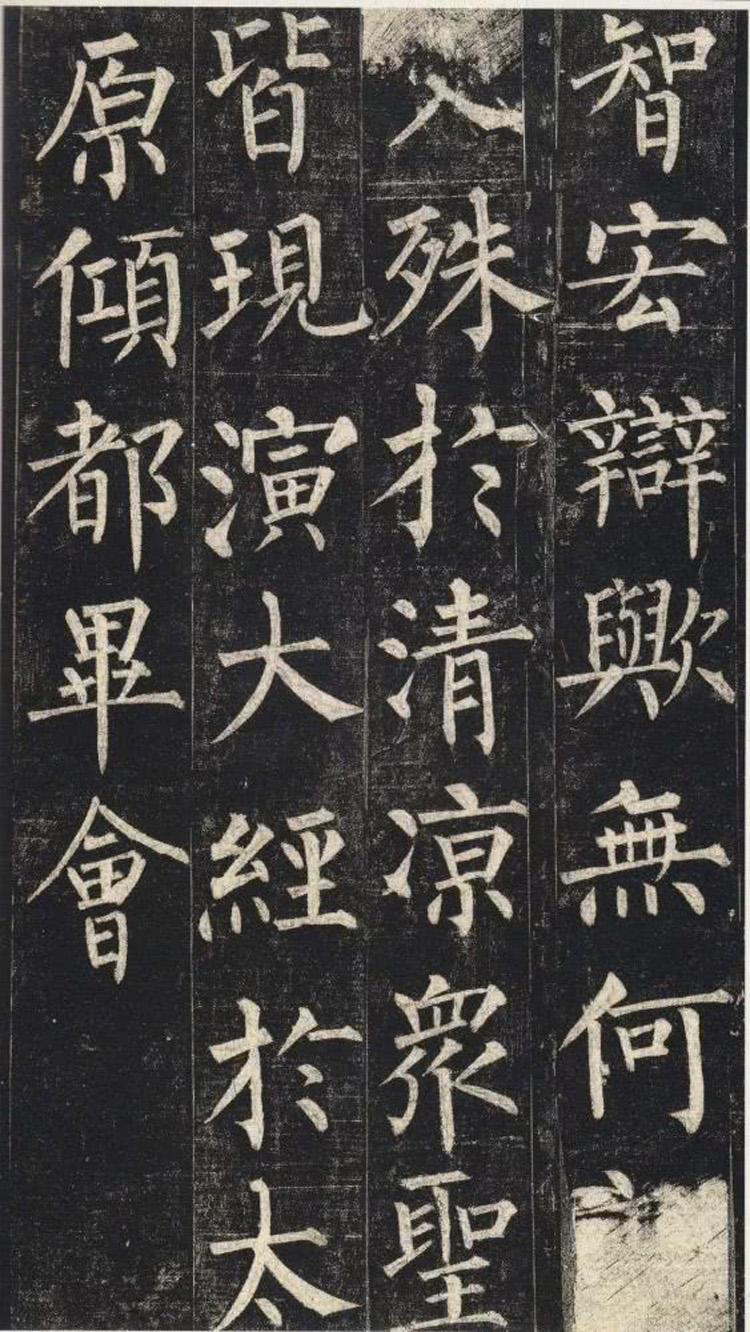 智宏辯歟無何
殊於清凉衆聖
皆現演大經於太
原傾都畢會